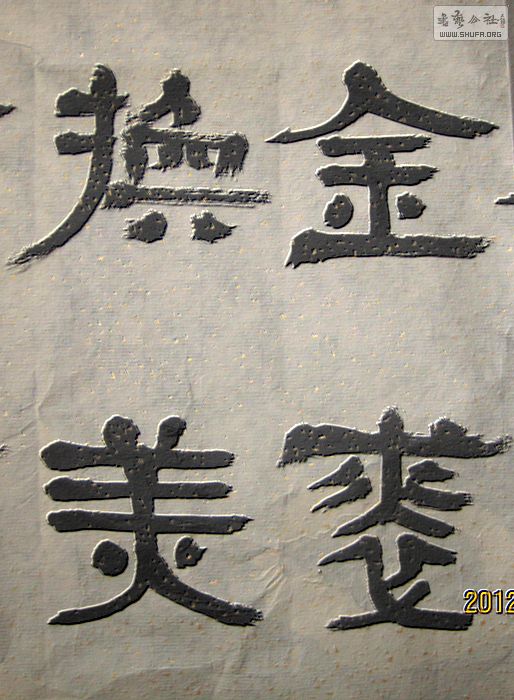 書藝公社
WWW.SHUFA.ORG
金裘
換美
2012